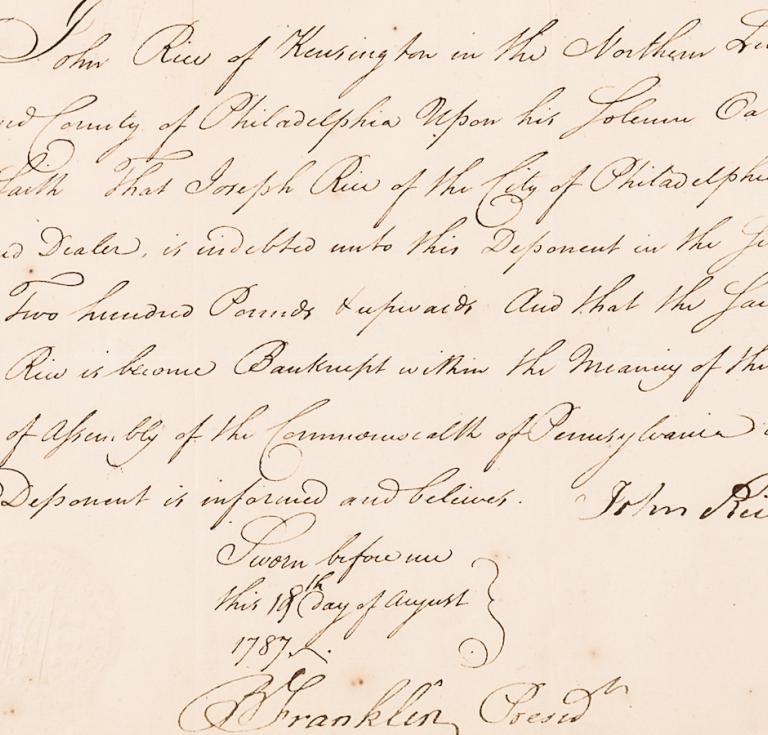 John Rice of Kensington in the Northern Li
nd County of Philadelphia Upon his Solemn Oa
Saith That Joseph Rice of the City of Philadelphi
ed Dealer, is indebted unto this Deponent in the Su
Two hundred Pounds & upwards And that the Sai
Rice is become Bankrupt within the Meaning of the
of Assembly of the Commonwealth of Pennsylvania
Deponent is informed and believes. John Ric
Sworn before me
this 18th day of August
1787.
B Franklin Presidt